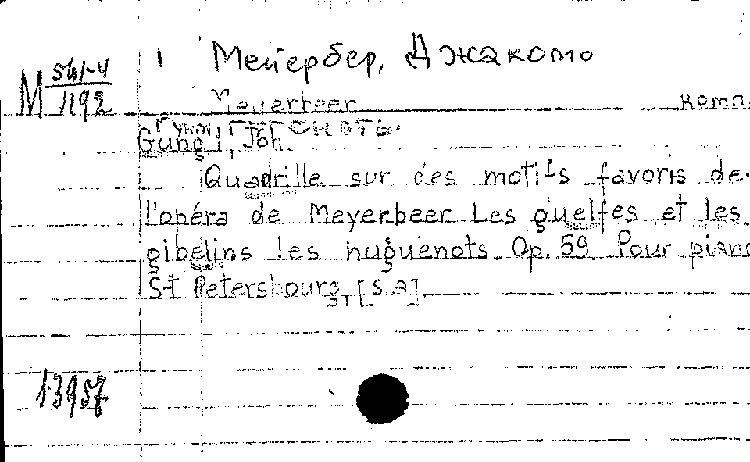 1 Мейербер, Джакомо
M 541-4
1192
Meyerbeer комп
Gungl, Joh.
Quadrille sur des motifs favoris de
l'opéra de Meyerbeer Les guelfes et les
gibelins les huguenots. Op. 59 Pour piano
St Petersbourg, [s.a].
13957